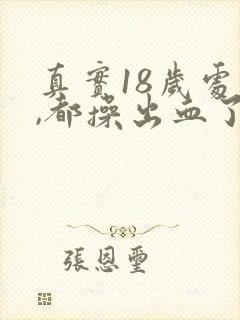 真實18歲處
,都操出血了
張恩璽